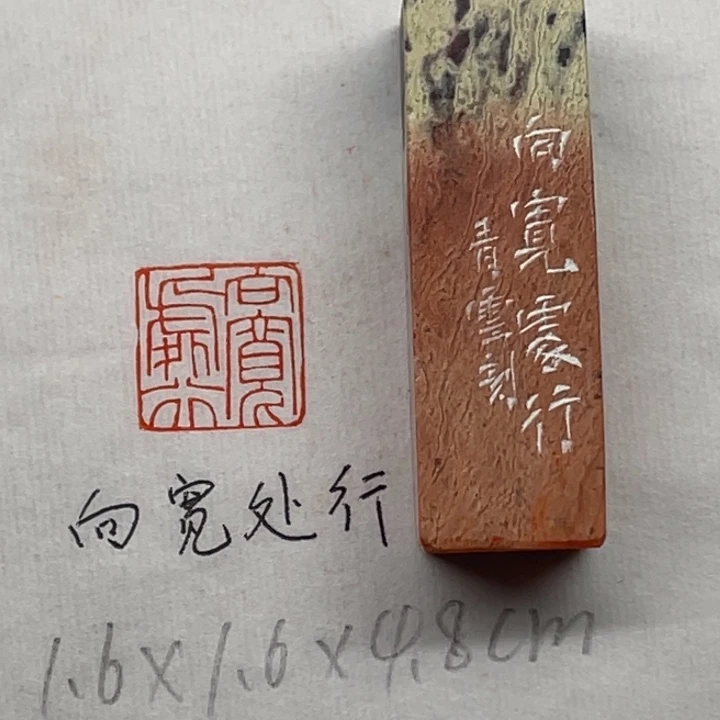 向寬處行
青雲刻
向寬處行
向宽处行
1.6×1.6×4.8cm